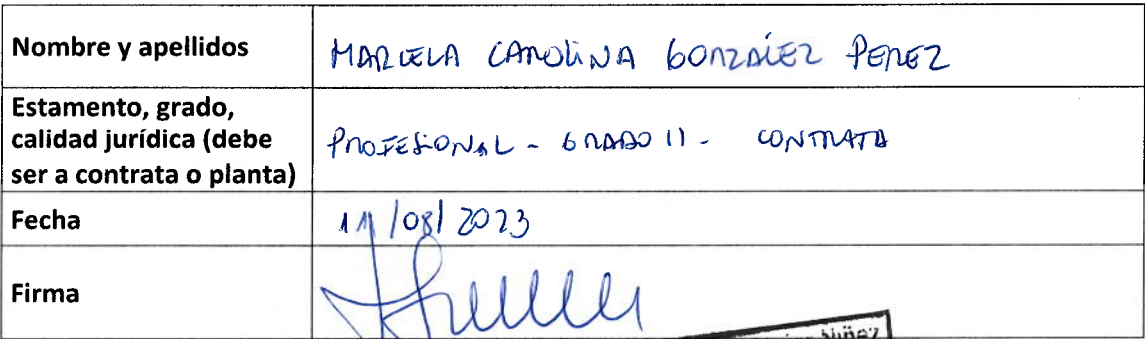 Nombre y apellidos
MARCELA CAROLINA GONZALEZ PEREZ
Estamento, grado,
calidad jurídica (debe
ser a contrata o planta)
PROFESIONAL - GRADO 11 - CONTRATA
Fecha
11/08/2023
Firma
Niñez